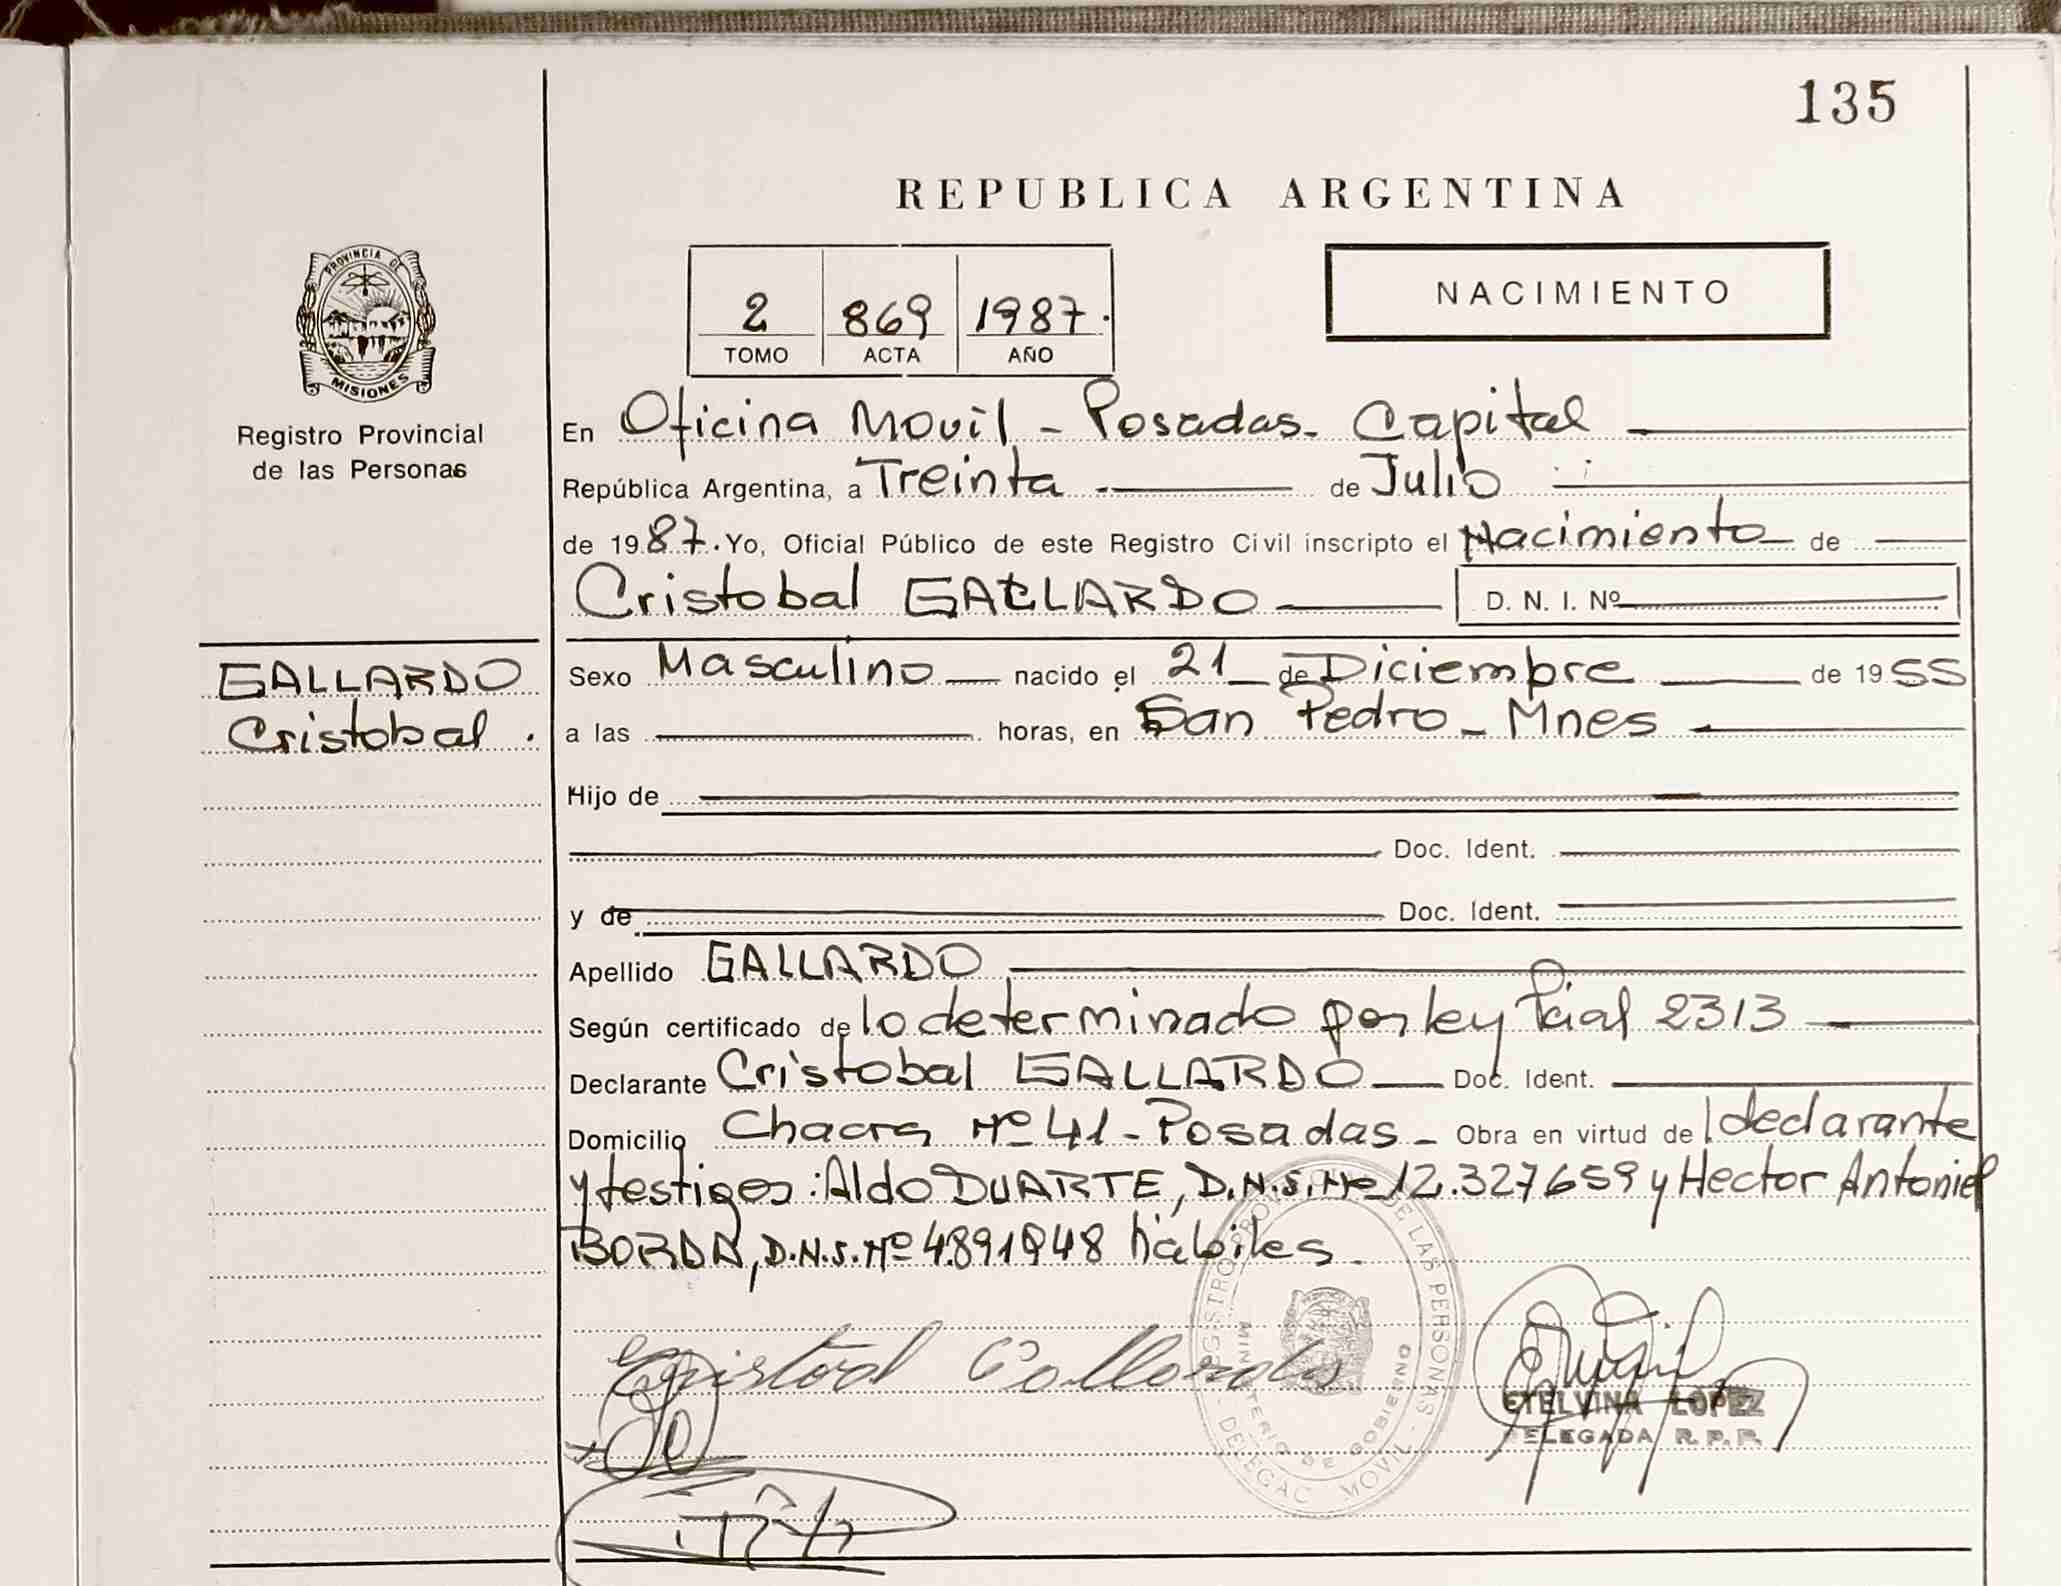 135
REPUBLICA ARGENTINA
PROVINCIA DE
MISIONES
Registro Provincial
de las Personas
2 869 1987.
TOMO ACTA AÑO
NACIMIENTO
En Oficina Movil - Posadas - Capital
República Argentina, a Treinta de Julio
de 1987. Yo, Oficial Público de este Registro Civil inscripto el Nacimiento de
Cristobal GALLARDO D. N. I. Nº
GALLARDO
Cristobal.
Sexo Masculino nacido el 21 de Diciembre de 1955
a las horas, en San Pedro - Mnes
Hijo de
Doc. Ident.
y de Doc. Ident.
Apellido GALLARDO
Según certificado de lo determinado por ley Pcial 2313
Declarante Cristobal GALLARDO Doc. Ident.
Domicilio Chacra Nº 41 - Posadas - Obra en virtud de l declarante
y testigos: Aldo DUARTE, D.N.I. Nº 12.327659 y Hector Antoniel
BORDA, D.N.I. Nº habiles.
REGISTRO PROVINCIAL DE LAS PERSONAS
MINISTERIO DE GOBIERNO
DELEGAC MOVIL
Cristobal Gallardo
ETELVINA LOPEZ
DELEGADA R.P.P.